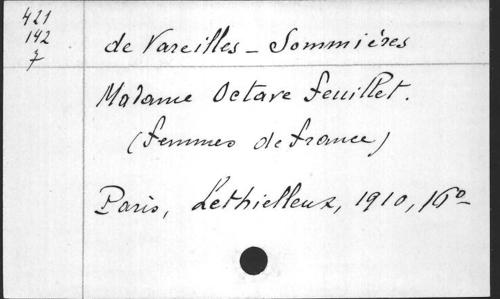 421
142
7
de Vareilles - Sommières
Madame Octave Feuillet.
(Femmes de France)
Paris, Lethielleux, 1910, 16º